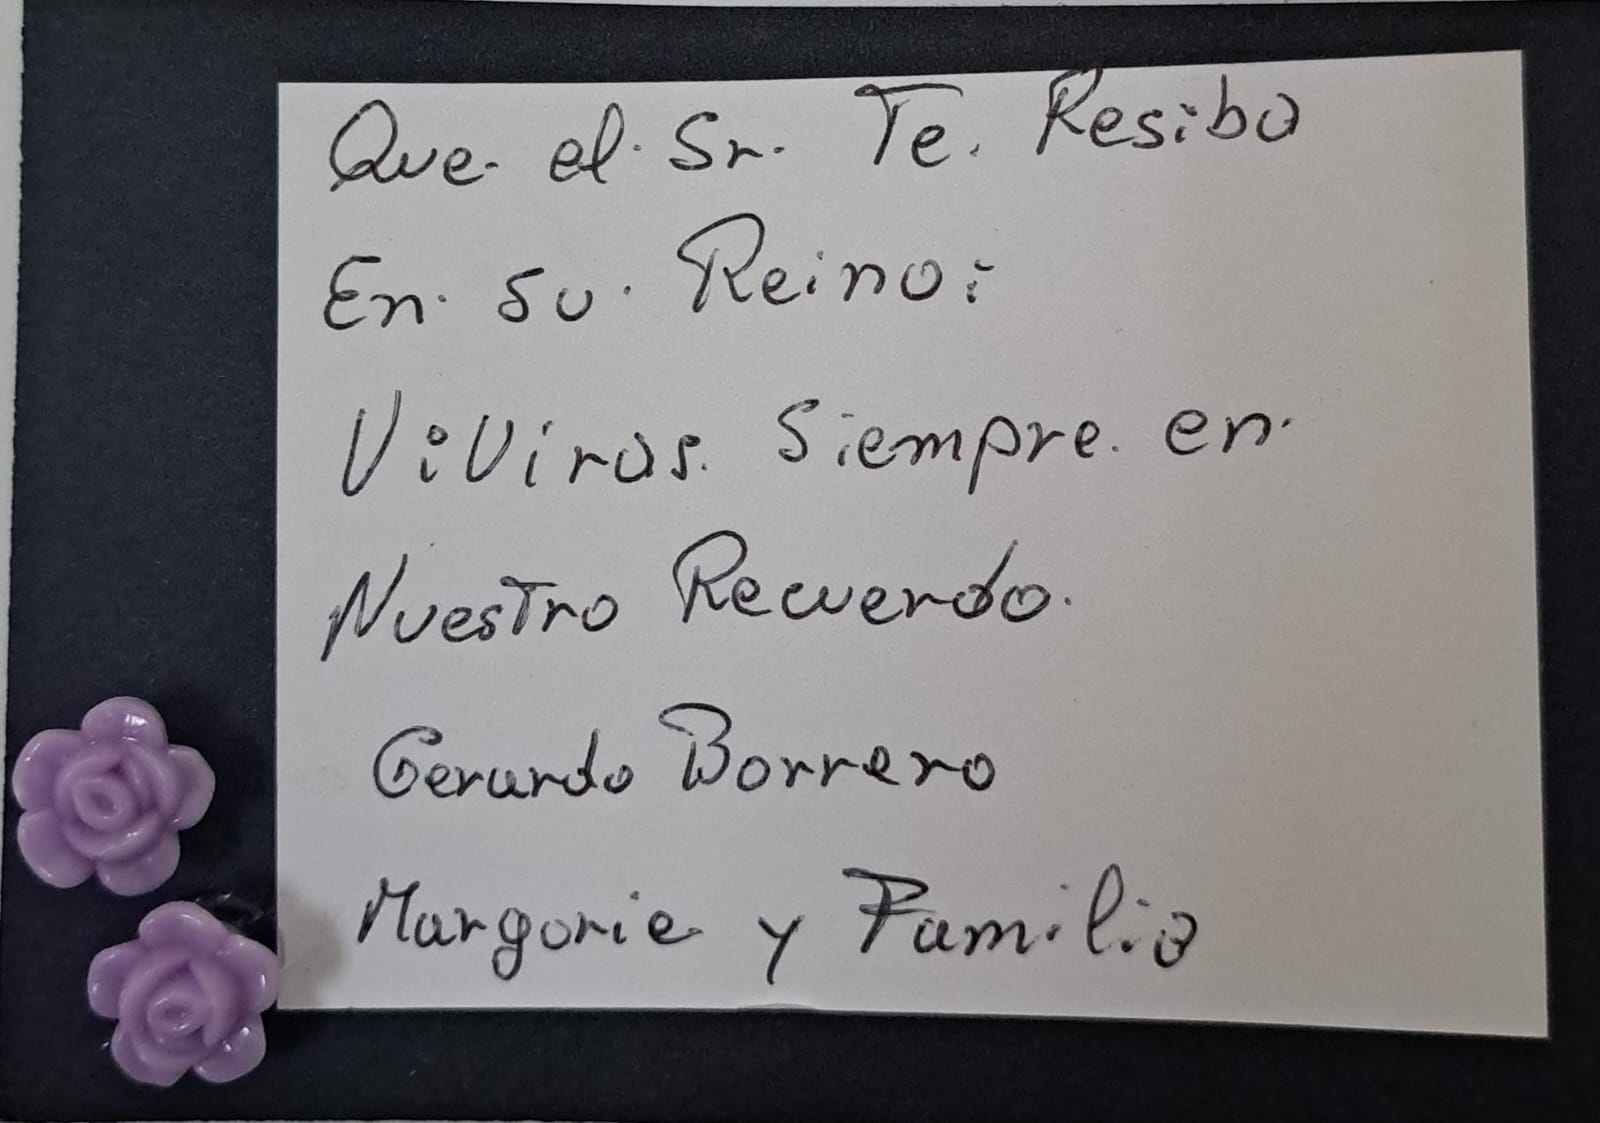 Que. el. Sr. Te. Resiba
En. su. Reino:
ViViras. Siempre. en.
Nuestro Recuerdo.
Gerardo Borrero
Margorie y Familia